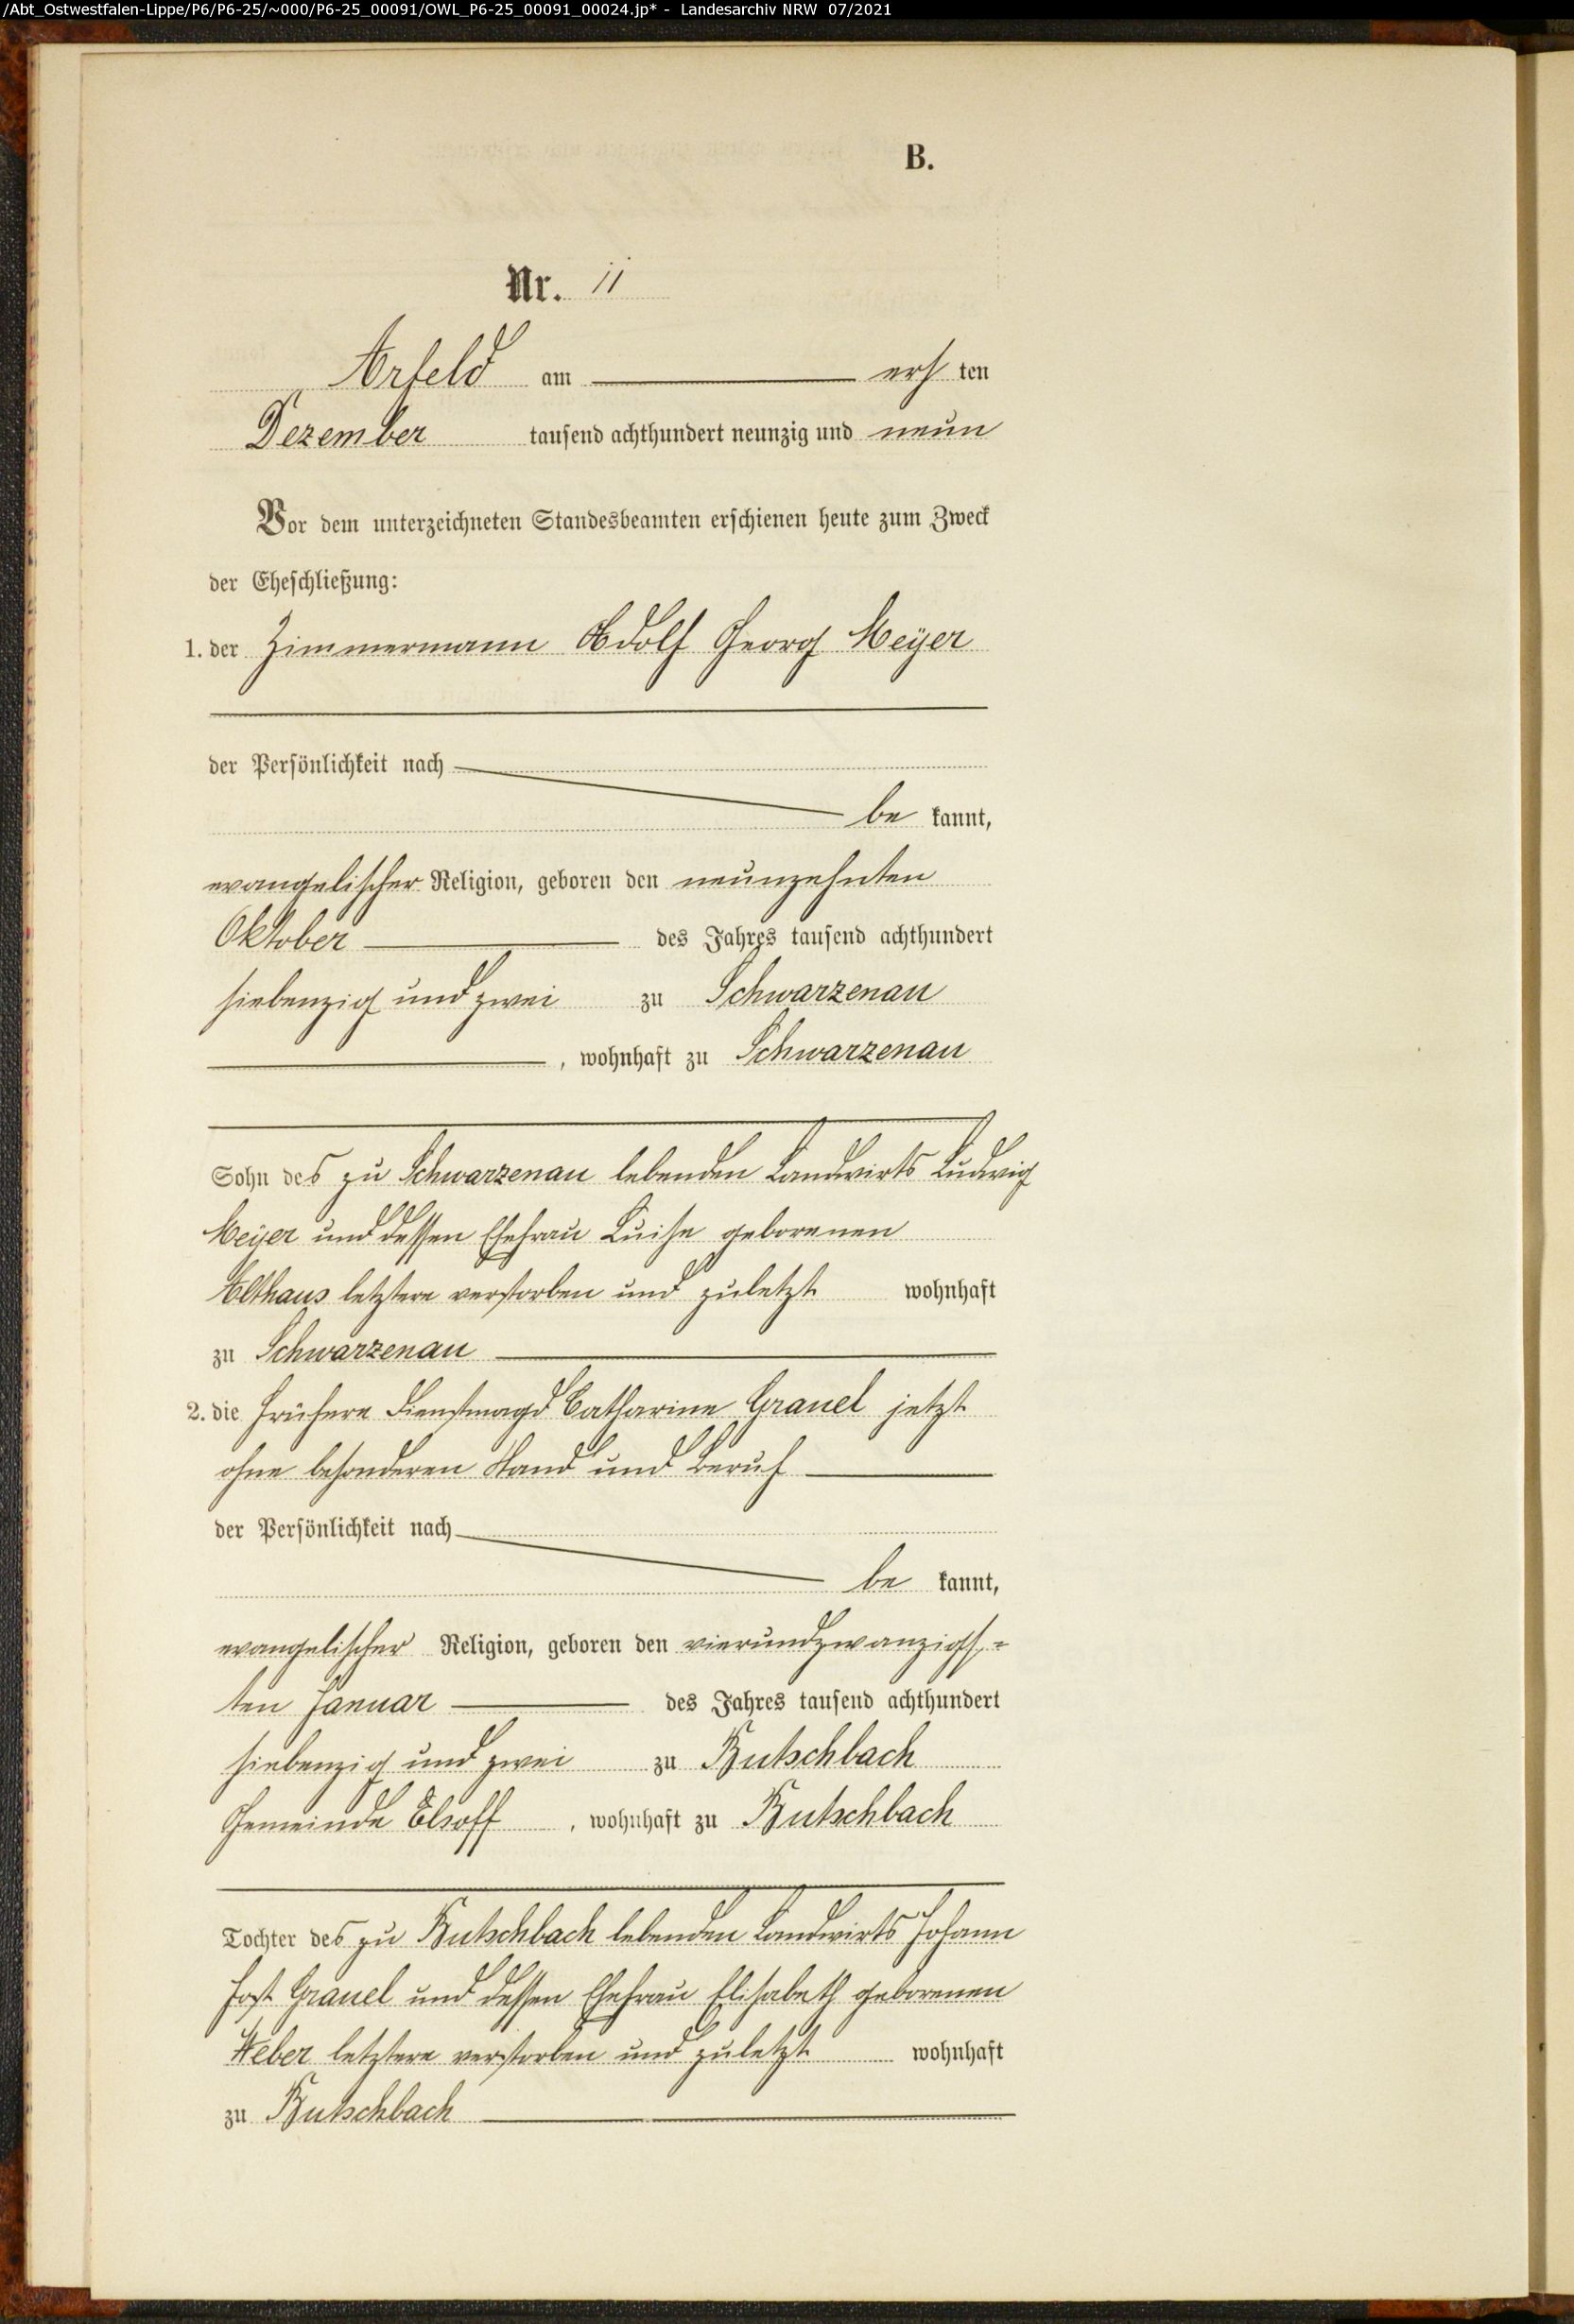 /Abt_Ostwestfalen-Lippe/P6/P6-25/~000/P6-25_00091/OWL_P6-25_00091_00024.jp* - Landesarchiv NRW 07/2021
B.
Nr. 11
Arfeld am ersten
Dezember tausend achthundert neunzig und neun
Vor dem unterzeichneten Standesbeamten erschienen heute zum Zweck
der Eheschließung:
1. der Zimmermann Adolf Georg Meyer
der Persönlichkeit nach
be kannt,
evangelischer Religion, geboren den neunzehnten
Oktober des Jahres tausend achthundert
siebenzig und zwei zu Schwarzenau
, wohnhaft zu Schwarzenau
Sohn des zu Schwarzenau lebenden Landwirts Ludwig
Meyer und dessen Ehefrau Luise geborenen
Althaus letztere verstorben und zuletzt wohnhaft
zu Schwarzenau
2. die frühere Dienstmagd Catharine Grauel jetzt
ohne besonderen Stand und Beruf
der Persönlichkeit nach
be kannt,
evangelischer Religion, geboren den vierundzwanzigs=
ten Januar des Jahres tausend achthundert
siebenzig und zwei zu Beutschbach
Gemeinde Elsoff, wohnhaft zu Butschbach
Tochter des zu Butschbach lebenden Landwirts Johann
Jost Grauel und dessen Ehefrau Elisabeth geborenen
Weber letztere verstorben und zuletzt wohnhaft
zu Butschbach